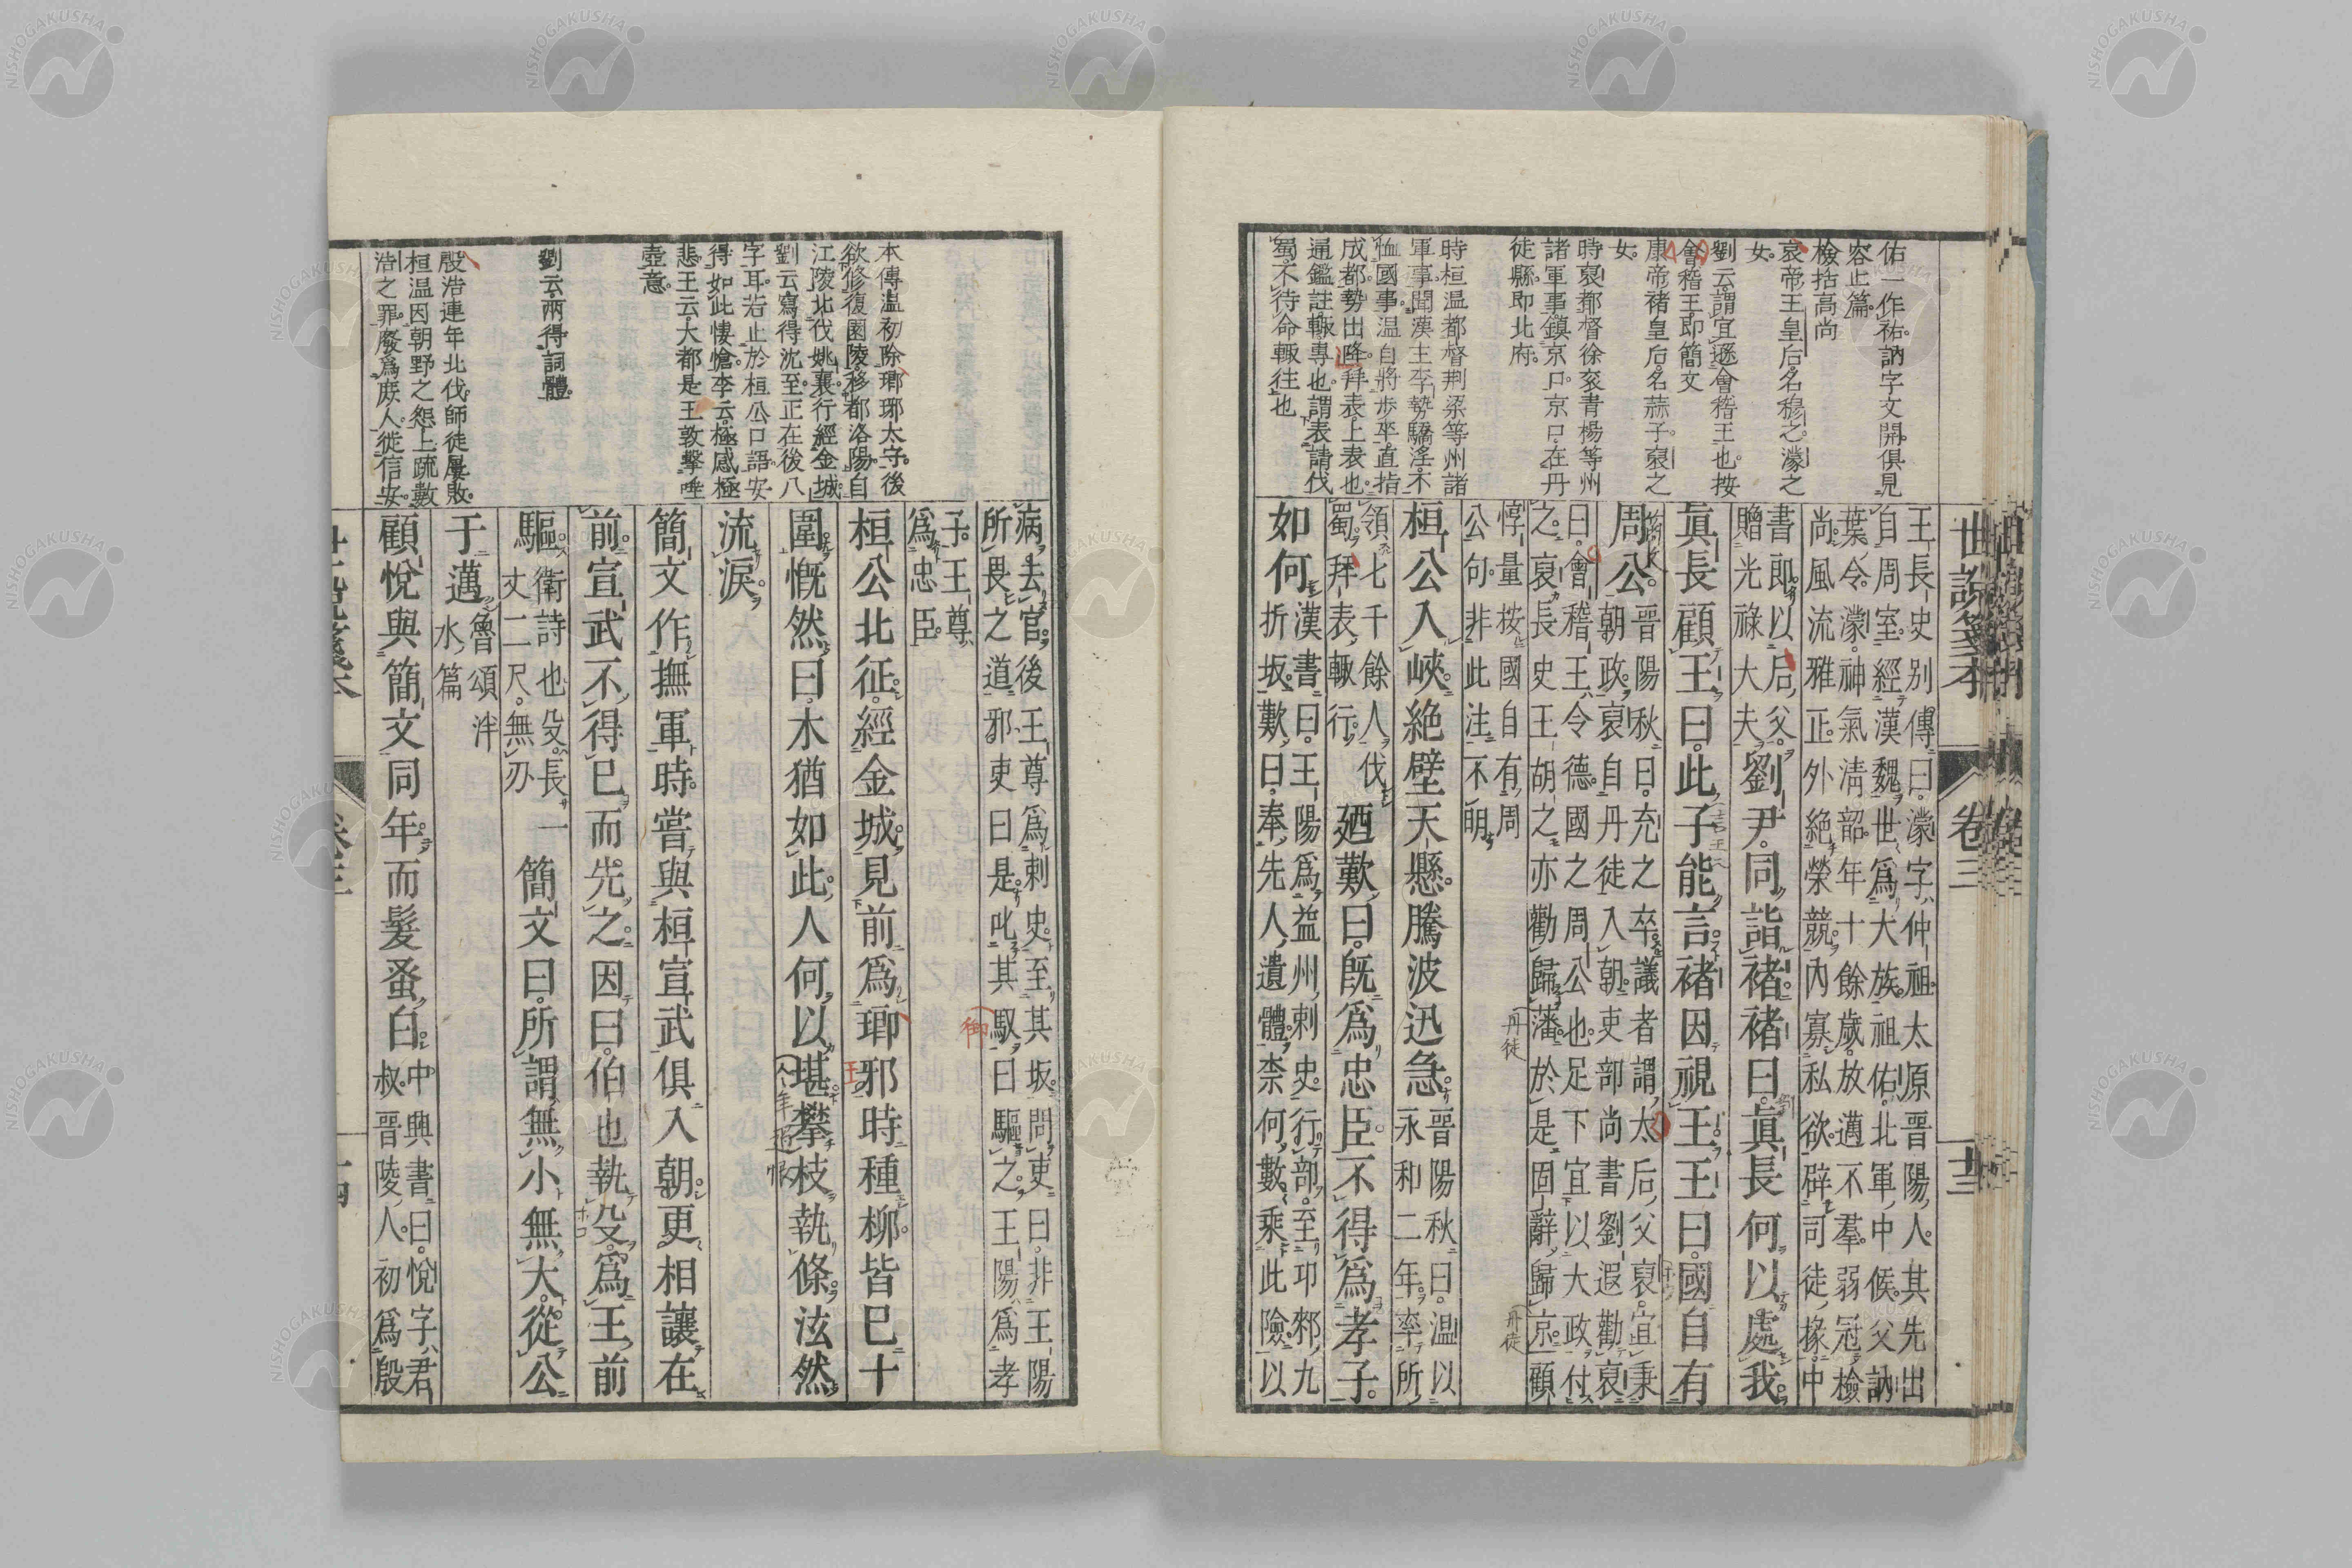 世說箋本
卷三
十三
佑一作祐訥字文開俱見
容止篇
檢括高尚
哀帝王皇后名穆之濛之
女
劉云謂宜遜會稽王也按
會稽王即簡文
康帝褚皇后名蒜子裒之
女
時裒都督徐兗青楊等州
諸軍事鎮京口京口在丹
徒縣即北府
時桓温都督荆梁等州諸
軍事聞漢主李勢驕淫不
恤國事温自將步卒直指
成都勢出降拜表上表也
通鑑註輙專也謂表請伐
蜀不待命輙往也
王長史别傳曰濛字仲祖太原晉陽人其先出
自周室經漢魏世爲大族祖佑北軍中候父訥
葉令濛神氣清韶年十餘歲放邁不羣弱冠檢
尚風流雅正外絶榮競內寡私欲辟司徒掾中
書即以后父
贈光祿大夫
劉尹同詣褚褚曰眞長何以處我
眞長顧王曰此子能言褚因視王王曰國自有
周公
晉陽秋曰充之卒議者謂太后父裒宜秉
朝政裒自丹徒入朝吏部尚書劉遐勸裒
曰會稽王令德國之周公也足下宜以大政付
之裒長史王胡之亦勸歸藩於是固辭歸京顧
惇量按國自有周
公句非此注不明
桓公入峽絶壁天懸騰波迅急
晉陽秋曰温以
永和二年率所
領七千餘人伐
蜀拜表輙行
廼歎曰旣爲忠臣不得爲孝子
如何
漢書曰王陽爲益州刺史行部至卭郲九
折坂歎曰奉先人遺體柰何數乘此險以
本傳温初除瑯琊太守後
欲修復園陵移都洛陽自
江陵北伐姚襄行經金城
劉云寫得沈至正在後八
字耳若止於桓公口語安
得如此悽愴李云極感極
悲王云大都是王敦擊唾
壺意
劉云兩得詞體
殷浩連年北伐師徒屢敗
桓温因朝野之怨上疏數
浩之罪廢爲庶人徙信安
病去官後王尊爲刺史至其坂問吏曰非王陽
所畏之道邪吏曰是叱其馭曰驅之王陽爲孝
子王尊
爲忠臣
桓公北征經金城見前爲瑯邪時種柳皆已十
圍慨然曰木猶如此人何以堪攀枝執條泫然
流淚
簡文作撫軍時嘗與桓宣武俱入朝更相讓在
前宣武不得已而先之因曰伯也執殳爲王前
驅
衛詩也殳長一
丈二尺無刃
簡文曰所謂無小無大從公
于邁
魯頌泮
水篇
顧悅與簡文同年而髮蚤白
中興書曰悅字君
叔晉陵人初爲殷